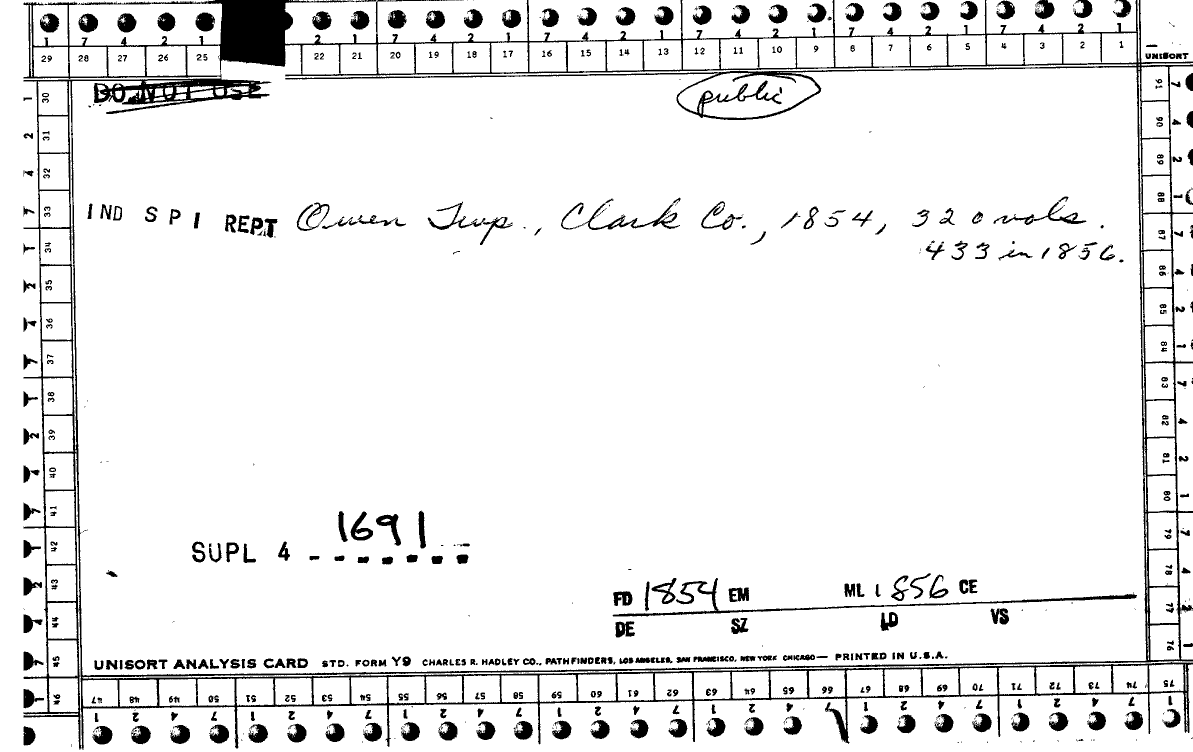 1 7 4 2 1 2 1 7 4 2 1 7 4 2 1 7 4 2 1 7 4 2 1 7 4 2 1
29 28 27 26 25 22 21 20 19 18 17 16 15 14 13 12 11 10 9 8 7 6 5 4 3 2 1 UNISORT
DO NOT USE
public
IND SPI REPT Owen Twp., Clark Co., 1854, 320 vols.
433 in 1856.
1691
SUPL 4 - - - - - - -
FD 1854 EM ML 1856 CE
DE SZ LD VS
UNISORT ANALYSIS CARD STD. FORM Y9 CHARLES R. HADLEY CO., PATHFINDERS, LOS ANGELES, SAN FRANCISCO, NEW YORK CHICAGO — PRINTED IN U.S.A.
30 31 32 33 34 35 36 37 38 39 40 41 42 43 44 45 46
91 90 89 88 87 86 85 84 83 82 81 80 79 78 77 76
47 48 49 50 51 52 53 54 55 56 57 58 59 60 61 62 63 64 65 66 67 68 69 70 71 72 73 74 75
1 2 4 7 1 2 4 7 1 2 4 7 1 2 4 7 1 2 4 7 1 2 4 7 1 2 4 7 1